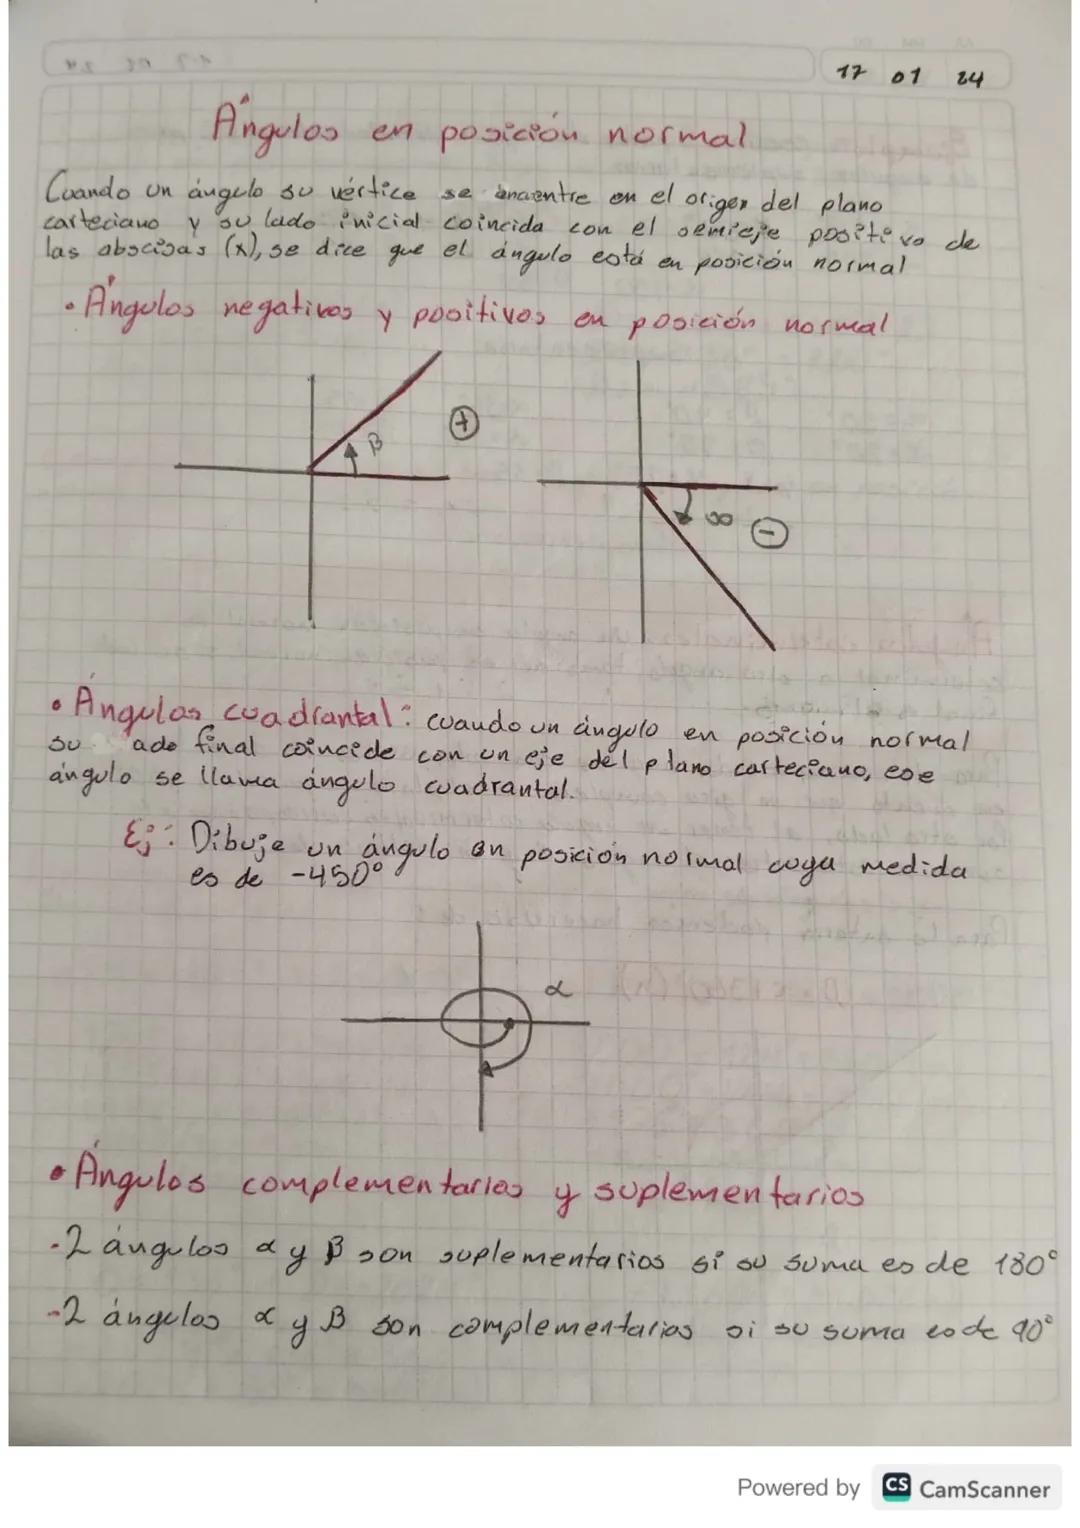 17 01 24
Ángulos en posición normal
Cuando un ángulo su vértice se encuentre en el origen del plano
carteciano y su lado inicial coincida con el semieje positivo de
las abscisas (x), se dice que el ángulo está en posición normal
• Ángulos negativos y positivos en posición normal
β +
∝ -
• Ángulos cuadrantal: cuando un ángulo en posición normal
su lado final coincide con un eje del plano carteciano, ese
ángulo se llama ángulo cuadrantal.
Ej: Dibuje un ángulo en posición normal cuya medida
es de -450°
α
• Ángulos complementarios y suplementarios
-2 ángulos α y β son suplementarios si su suma es de 180°
-2 ángulos α y β son complementarios si su suma es de 90°
Powered by CS CamScanner